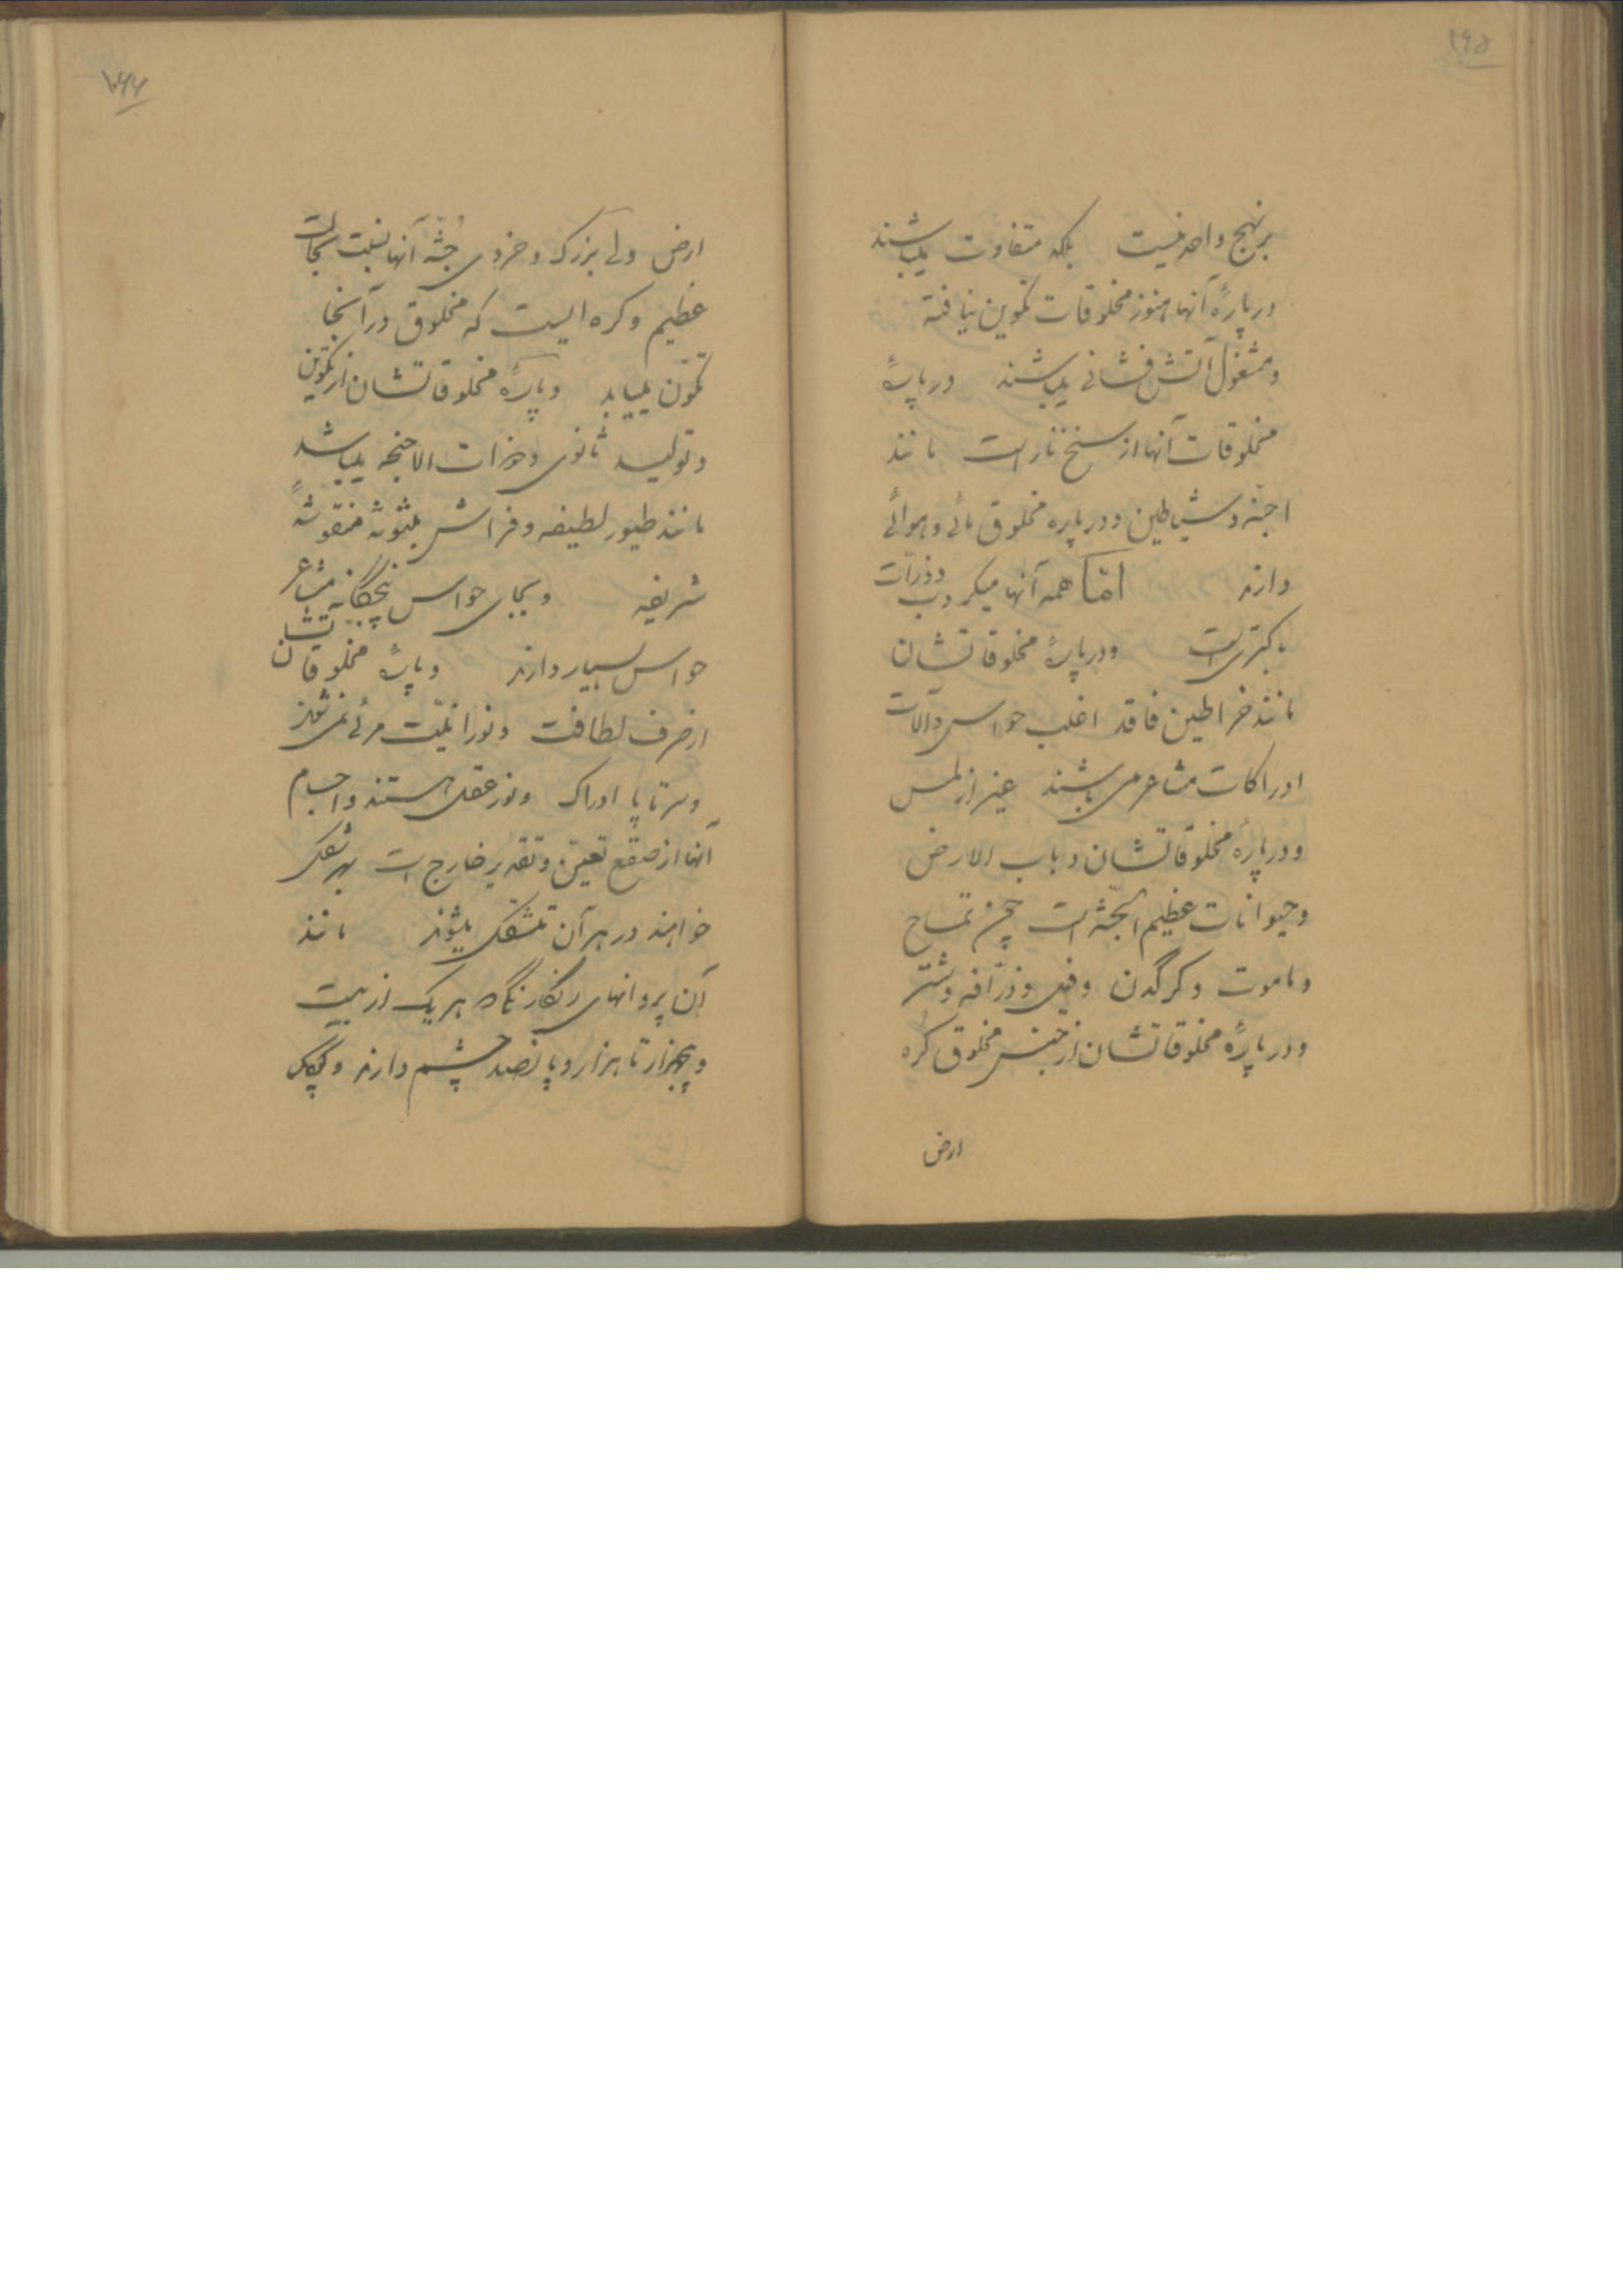 ۱۶۵
بر نهج واحد نیست بلکه متفاوت میباشند
در پارهٔ آنها هنوز مخلوقات تکوین نیافته
و مشغول آتش فشانی میباشند در پارهٔ
مخلوقات آنها از سنخ نار است مانند
اجنّه و شیاطین و در پاره مخلوق مائی و هوائی
دارند امّا همه آنها میکروب و ذرّات
باکتری است و در پارهٔ مخلوقاتشان
مانند خراطین فاقد اغلب حواس و آلات
ادراکات مشاعر می باشند غیر از لمس
و در پارهٔ مخلوقاتشان دباب الارض
و حیوانات عظیم الجثّه است چون تمساح
و ماموت و کرگدن و فیل و زرّافه و شتر
و در پارهٔ مخلوقاتشان از جنس مخلوق کره
ارض
۱۶۶
ارض ولی بزرگ و خردی جُثّه آنها بنسبت
عظیم و کره ایست که مخلوق در آنجا
تکوّن مییابد و پارهٔ مخلوقاتشان از تکوین
و تولید ثانوی و ذات الاجنحه میباشد
مانند طیور لطیفه و فراش مبثوثه منقوشهٔ
شریفه و بجای حواس پنجگانه مشاعر
حواس بسیار دارند و پارهٔ مخلوقاتشان
از صرف لطافت و نورانیّت مرئی نمی شوند
و سر تا پا ادراک و نور عقل هستند و اجسام
آنها از صقع تعیّن و تقدیر خارج است بهر شکل
خواهند در هر آن متشکل میشوند مانند
آن پروانهای رنگارنگ که هر یک از بیست
و پنجهزار تا هزار و پانصد چشم دارند و کپک